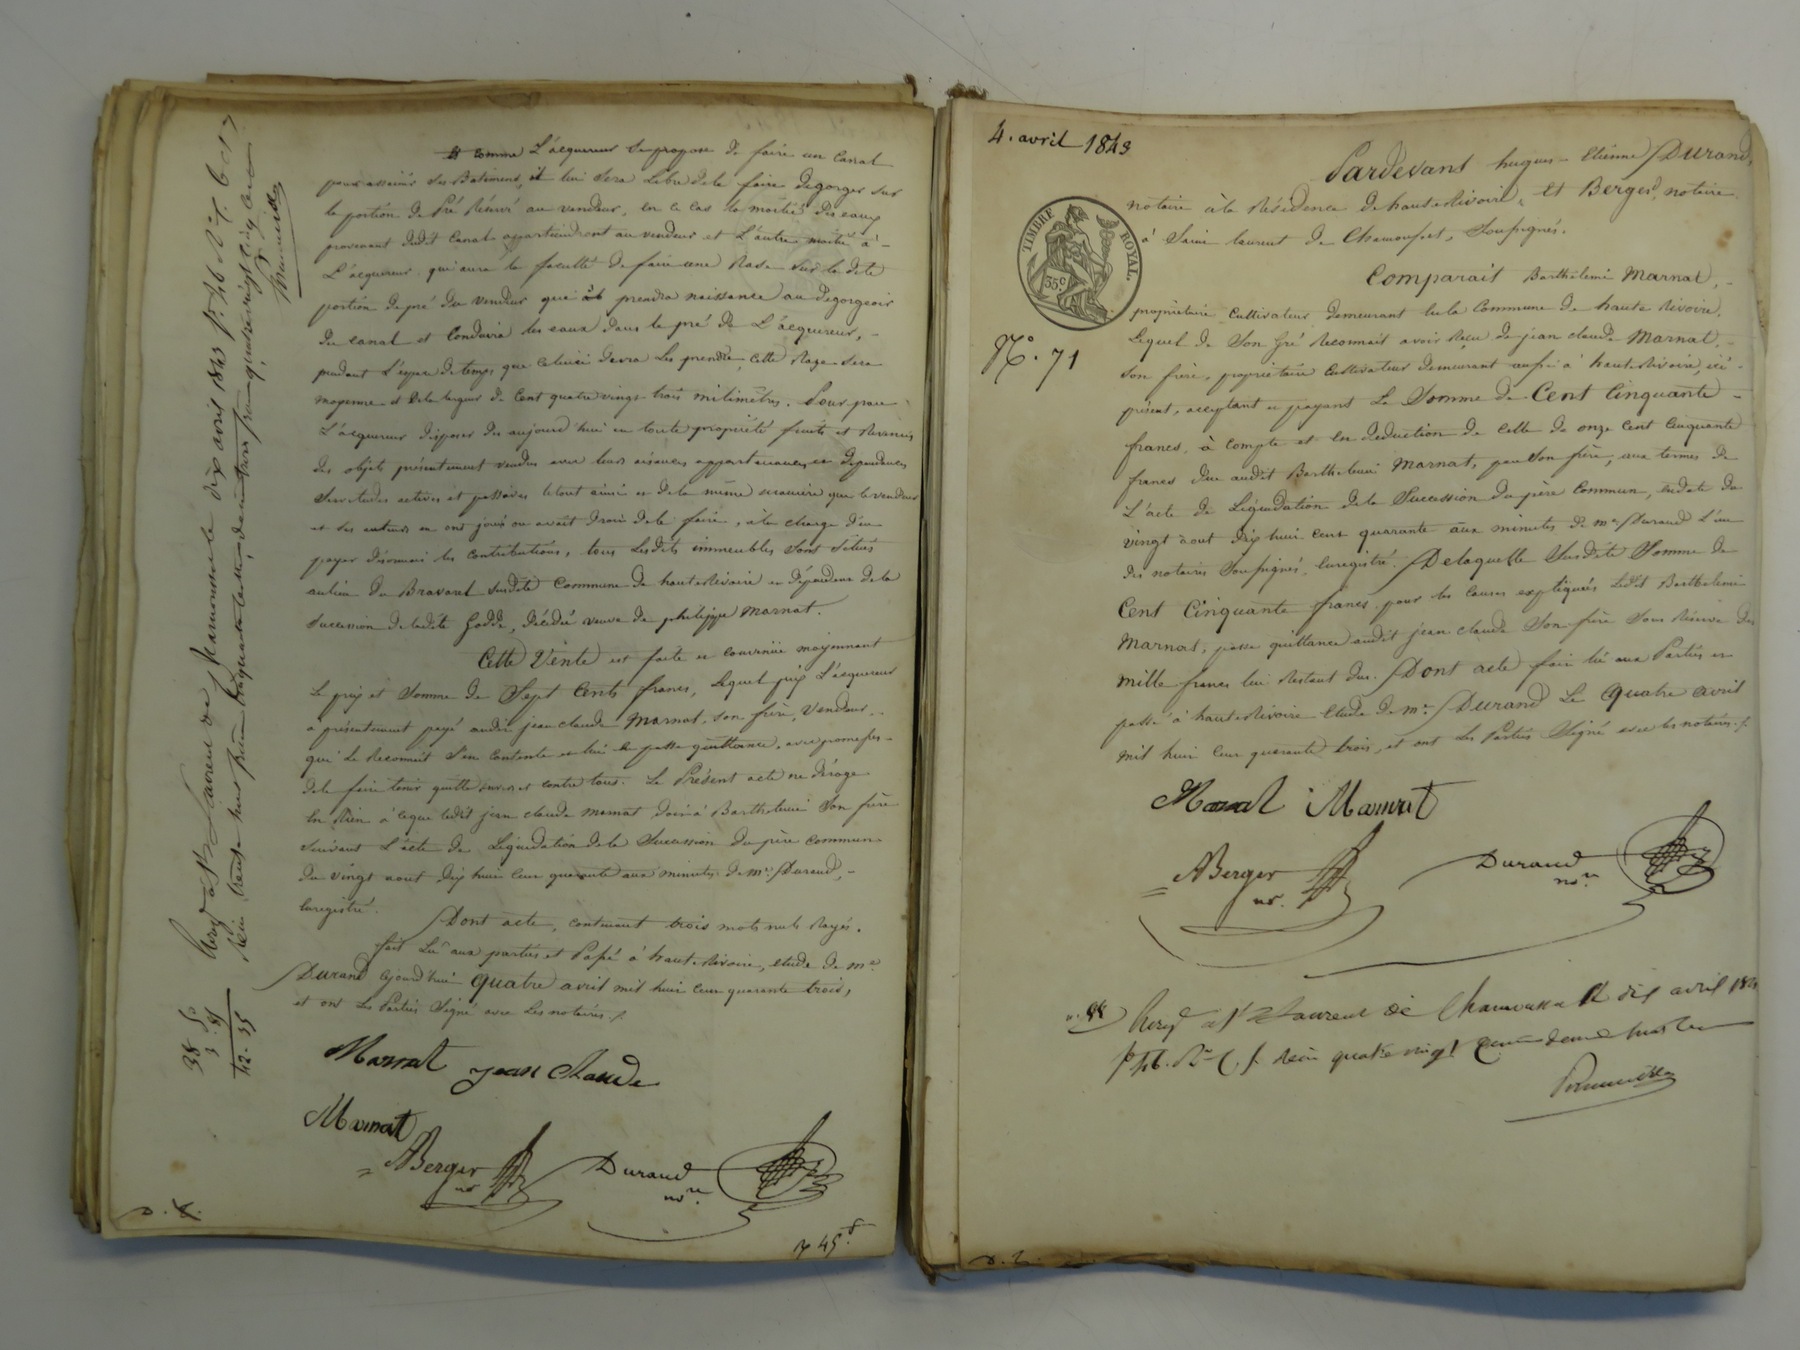 L'acquereur se propose de faire un canal
pour assainir ses Batiments, il lui sera libre de le faire degorger sur
la portion de Pré Réservé au vendeur, en ce cas la moitié des eaux
provenant dudit Canal appartiendront au vendeur et L'autre moitié à
L'acquereur qui aura la faculté de faire une Rase sur la dite
portion de pré du vendeur qui prendra naissance au degorgeoir
du canal et conduira les eaux dans le pré de L'acquereur,
pendant L'espace de temps que celui ci devra les prendre, cette Rase sera
moyenne et de la largeur de Cent quatre vingt trois milimètres. Pour par
L'acquereur disposer dès aujourd'hui en toute propriété fruits et Revenus
des objets présentement vendus avec leurs aisances appartenances et dependances
servitudes actives et passives le tout ainsi et de la même manière que le vendeur
et ses auteurs en ont joui ou avait droit de le faire, à la charge d'en
payer désormais les contributions, tous lesdits immeubles sont situés
au lieu du Bravard susdite Commune de hauterivoire et dépendent de la
succession de ladite Godde, décédée veuve de philippe Marnat.
Cette Vente est faite et convenue moyennant
le prix et Somme de Sept Cents francs, lequel prix L'acquereur
a présentement payé audit jean claude Marnat, son frère, Vendeur
qui le Reconnait s'en contente et lui en passe quittance, avec promesse
de le faire tenir quitte envers et contre tous. Le Présent acte ne déroge
en Rien à ce que ledit jean claude Marnat doit à Barthelemi son frère
suivant L'acte de Liquidation de la Succession du père commun
du vingt aout dix huit cent quarante aux minutes de me. Durand,
Enregistré.
Dont acte, contenant trois mots nuls Rayés.
fait Lu aux parties et Passé à hauterivoire, etude de me.
Durand ajourd'hui quatre avril mil huit cent quarante trois,
et ont les Parties Signé avec les notaires ./.
Marnat jean Claude
Marnat
Berger nre.
Durand nre.
Enregé à St Laurent de Chamousset le dix avril 1843 fo. 46 Ro. C. 6 et 7
38 . 5
42 . 35
4. avril 1843
TIMBRE ROYAL.
35c.
No. 71
Pardevant hugues-Etienne Durand,
notaire à la Résidence de hauterivoire, et Berger, notaire
à Saint laurent de Chamousset, Soussignés.
Comparait Barthelemi Marnat,
propriétaire Cultivateur demeurant en la Commune de haute Rivoire,
Lequel de Son gré Reconnait avoir Reçu de jean claude Marnat,
Son frère, propriétaire Cultivateur demeurant aussi à hauterivoire, ici
présent, acceptant et payant La Somme de Cent Cinquante
francs, à compte et en deduction de celle de onze Cent Cinquante
francs due audit Barthelemi Marnat, par Son frère, aux termes de
L'acte de Liquidation de la Succession du père Commun, en date du
vingt aout dix huit cent quarante aux minutes de me. Durand L'un
des notaires Soussignés, Enregistré. De laquelle Susdite Somme de
Cent Cinquante francs, pour les causes expliquées ledit Barthelemi
Marnat, passe quittance audit jean claude Son frère Sous Réserve des
mille francs lui Restant dus. Dont acte fait lu aux Parties et
passé à hauterivoire Etude de me. Durand Le quatre avril
mil huit cent quarante trois, et ont les Parties Signé avec les notaires ./.
Marnat Marnat
Berger nre.
Durand nre.
Enregé à St Laurent de Chamousset le dix avril 184
fo 46. Ro C.